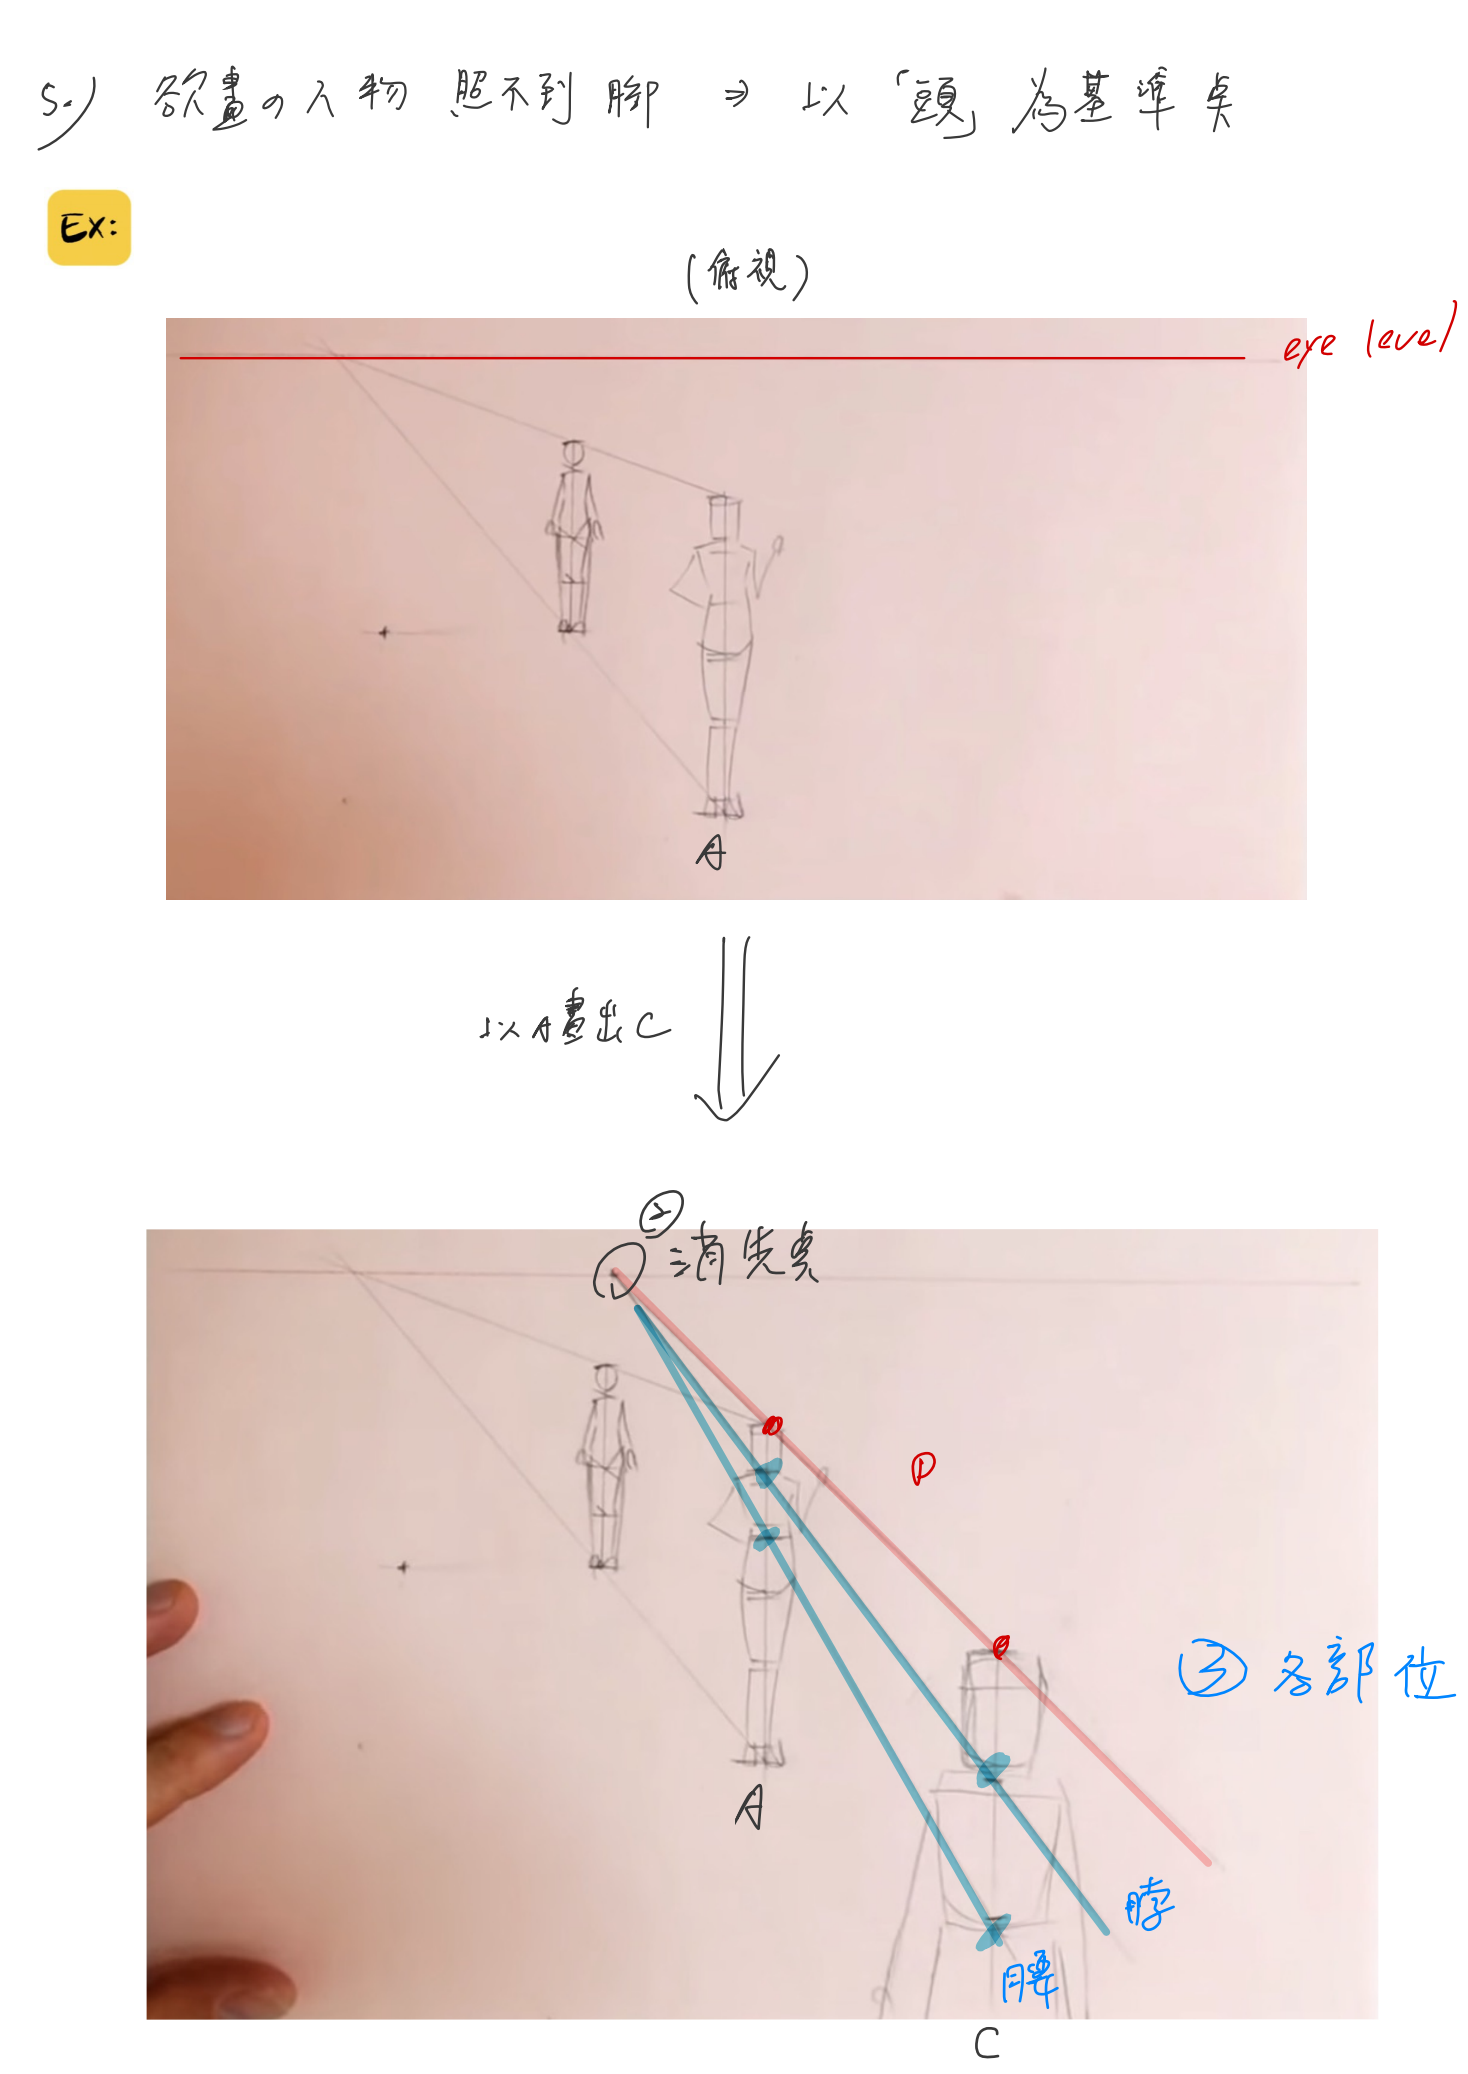 5.) 欲畫の人物 照不到腳 ⇒ 以「頭」為基準点
Ex:
(俯視)
eye level
A
以A畫出C
②
消失点
①
A
③各部位
脖
腰
C